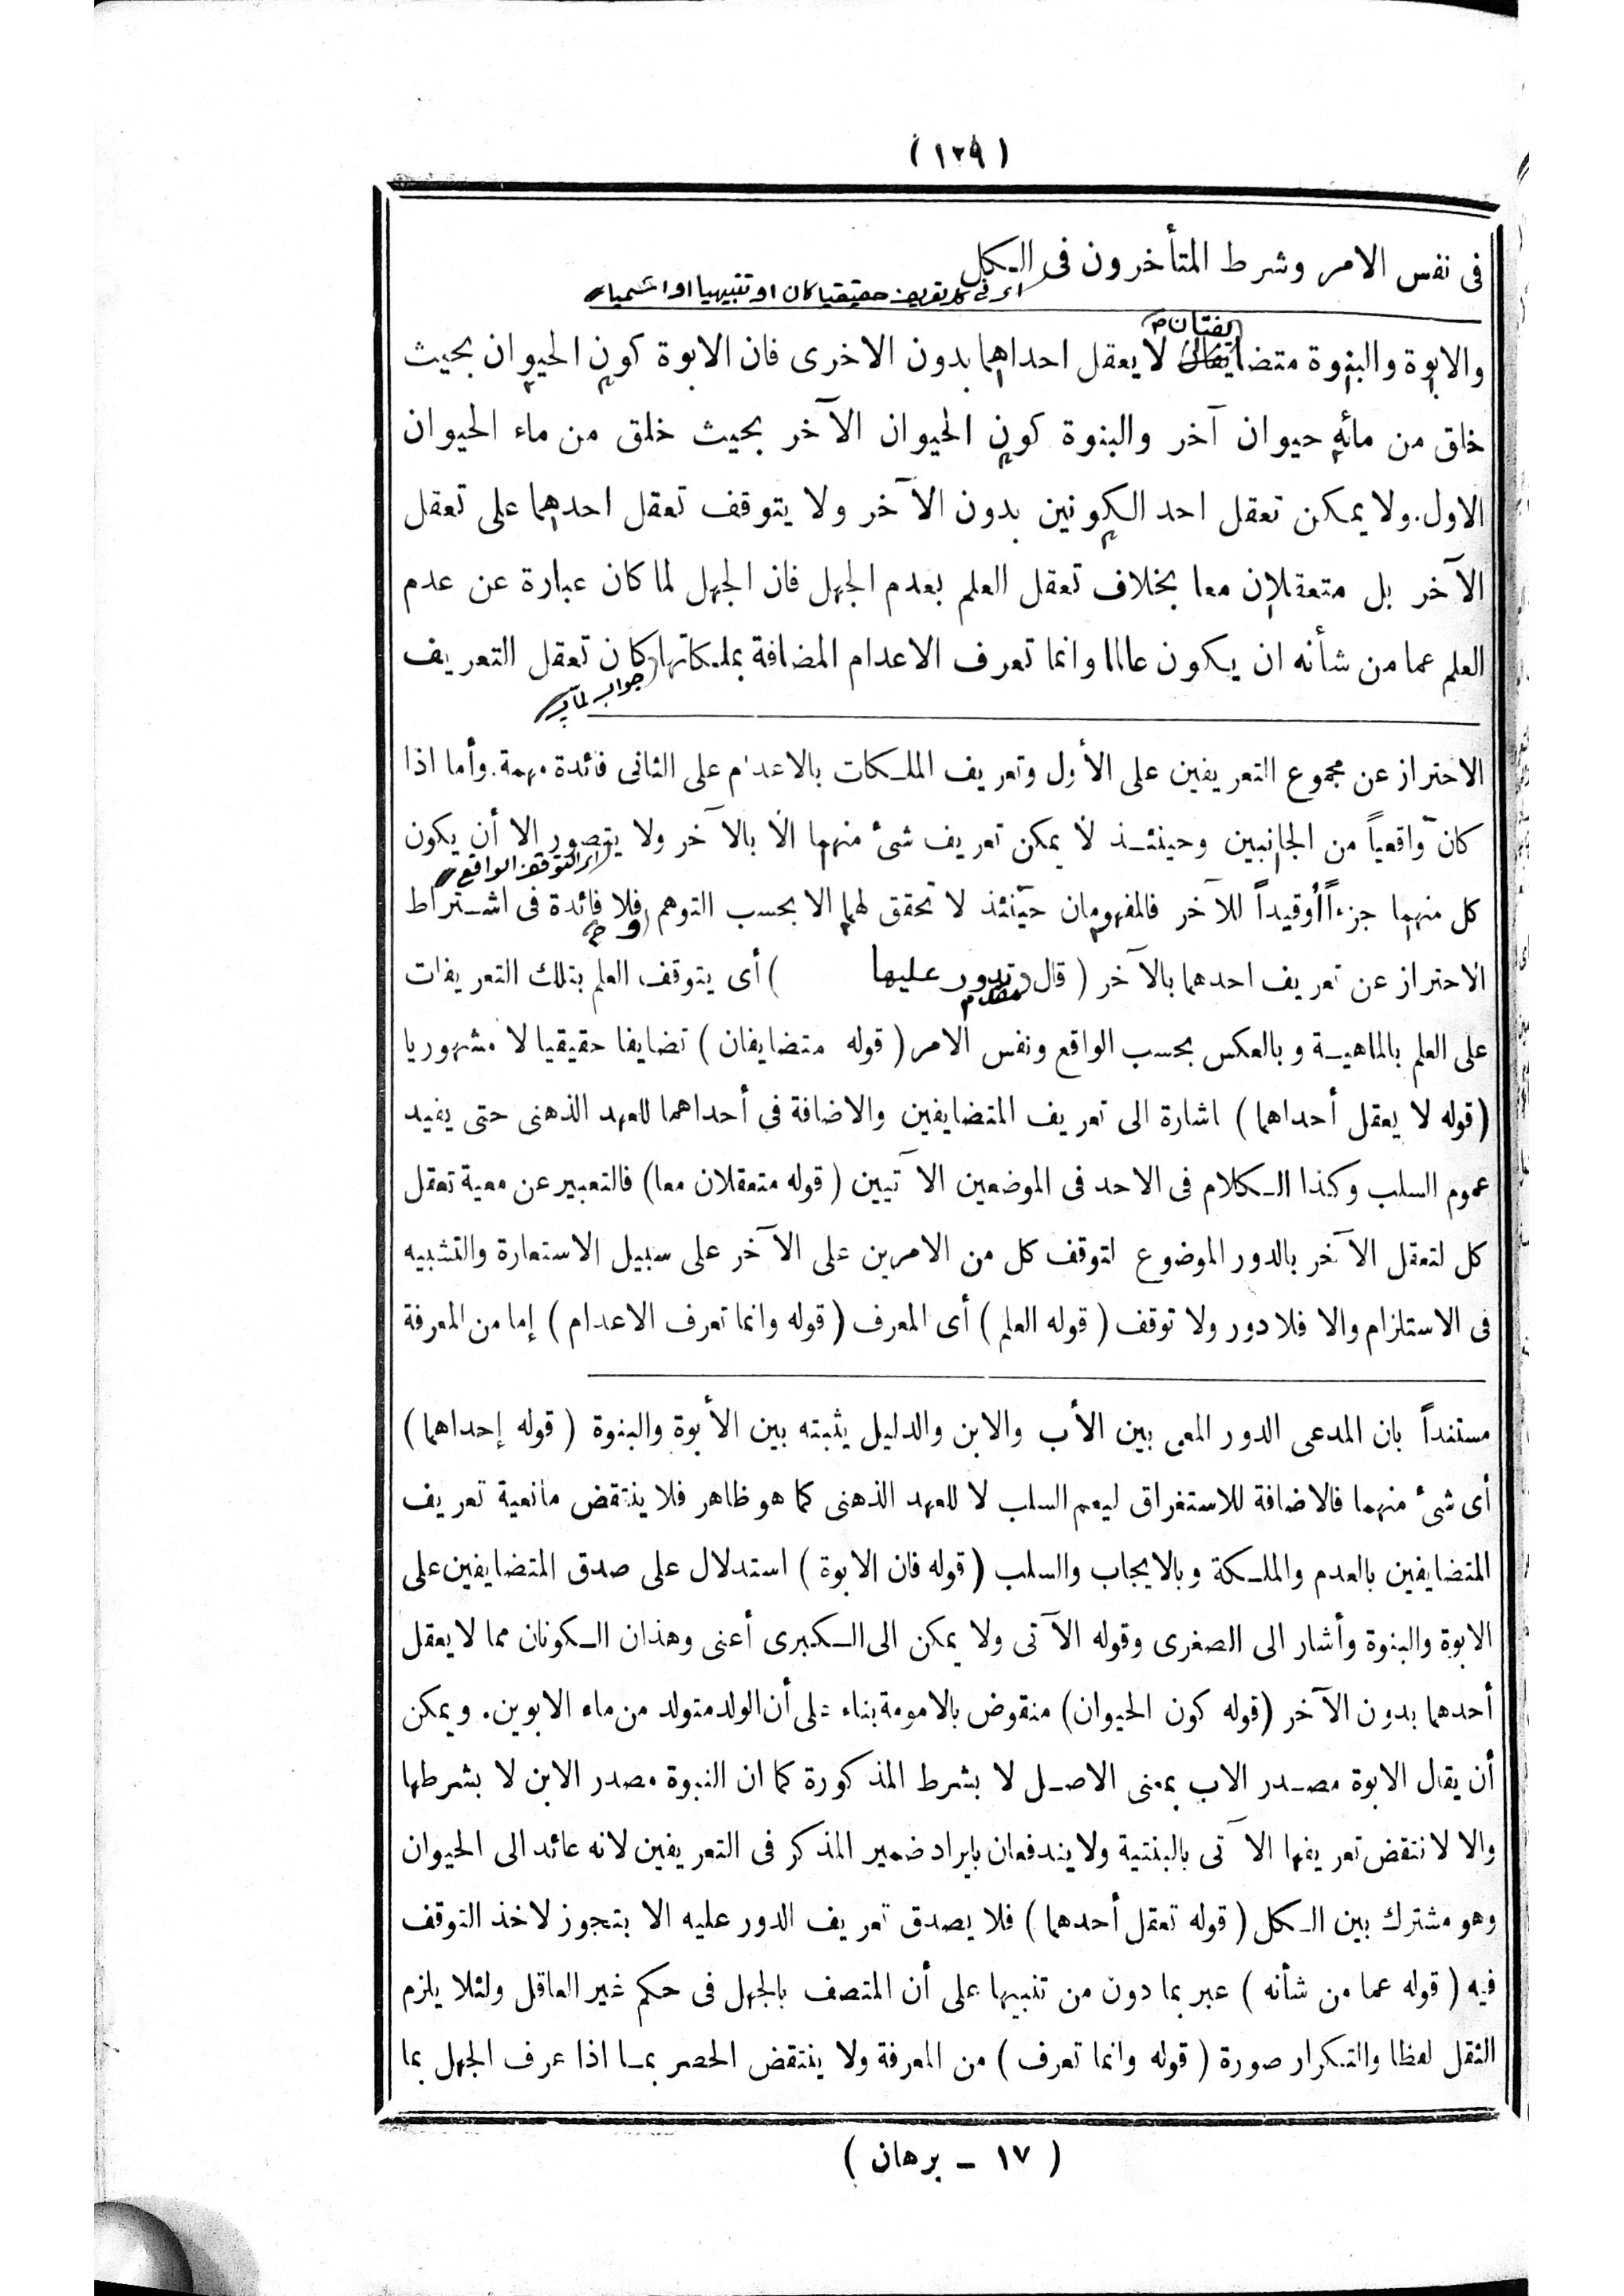 (١٢٩)
فى نفس الامر وشرط المتأخرون فى الـكل
اى فى كل تعريف حقيقيا كان او تنبيهيا او اسميا
يفتان
والابوة والبنوة متضايفان لا يعقل احداهما بدون الاخرى فان الابوة كون الحيوان بحيث
خلق من مائه حيوان آخر والبنوة كون الحيوان الآخر بحيث خلق من ماء الحيوان
الاول. ولا يمكن تعقل احد الكونين بدون الآخر ولا يتوقف تعقل احدهما على تعقل
الآخر بل متعقلان معا بخلاف تعقل العلم بعدم الجهل فان الجهل لما كان عبارة عن عدم
العلم عما من شأنه ان يكون عالما وانما تعرف الاعدام المضافة بملـكاتها كان تعقل التعريف
جواب لما
الاحتراز عن مجموع التعريفين على الأول وتعريف الملـكات بالاعدام على الثانى فائدة مهمة. وأما اذا
كان واقعياً من الجانبين وحينئـذ لا يمكن تعريف شىء منهما الا بالآخر ولا يتصور الا أن يكون
اى التوقف الواقع
كل منهما جزءاً أوقيداً للآخر فالمفهومان حينئذ لا تحقق لهما الا بحسب التوهم فلا فائدة فى اشـتراط
الاحتراز عن تعريف احدهما بالآخر (قال تدور عليها ) أى يتوقف العلم بتلك التعريفات
مقدم
على العلم بالماهيـة وبالعكس بحسب الواقع ونفس الامر (قوله متضايفان) تضايفا حقيقيا لا مشهوريا
(قوله لا يعقل أحداهما) اشارة الى تعريف المتضايفين والاضافة فى أحداهما للعهد الذهنى حتى يفيد
عموم السلب وكذا الـكلام فى الاحد فى الموضعين الآتيين (قوله متعقلان معا) فالتعبير عن معية تعقل
كل لتعقل الآخر بالدور الموضوع لتوقف كل من الامرين على الآخر على سبيل الاستعارة والتشبيه
فى الاستلزام والا فلا دور ولا توقف (قوله العلم) أى المعرف (قوله وانما تعرف الاعدام) إما من المعرفة
مستنداً بان المدعى الدور المعى بين الأب والابن والدليل يثبته بين الأبوة والبنوة (قوله إحداهما)
أى شىء منهما فالاضافة للاستغراق ليعم السلب لا للعهد الذهنى كما هو ظاهر فلا ينتقض مانعية تعريف
المتضايفين بالعدم والملـكة وبالايجاب والسلب (قوله فان الابوة) استدلال على صدق المتضايفين على
الابوة والبنوة وأشار الى الصغرى وقوله الآتى ولا يمكن الى الـكبرى أعنى وهذان الـكونان مما لا يعقل
أحدهما بدون الآخر (قوله كون الحيوان) منقوض بالامومة بناء على أن الولد متولد من ماء الابوين. ويمكن
أن يقال الابوة مصـدر الاب بمعنى الاصـل لا بشرط المذكورة كما ان النبوة مصدر الابن لا بشرطها
والا لانتقض تعريفها الآتى بالبنتية ولا يندفعان بايراد ضمير المذكر فى التعريفين لانه عائد الى الحيوان
وهو مشترك بين الـكل (قوله تعقل أحدهما) فلا يصدق تعريف الدور عليه الا بتجوز لاخذ التوقف
فيه (قوله عما من شأنه) عبر بما دون من تنبيها على أن المتصف بالجهل فى حكم غير العاقل ولئلا يلزم
الثقل لفظا والتـكرار صورة (قوله وانما تعرف) من المعرفة ولا ينتقض الحصر بمـا اذا عرف الجهل بما
(١٧ ــ برهان)